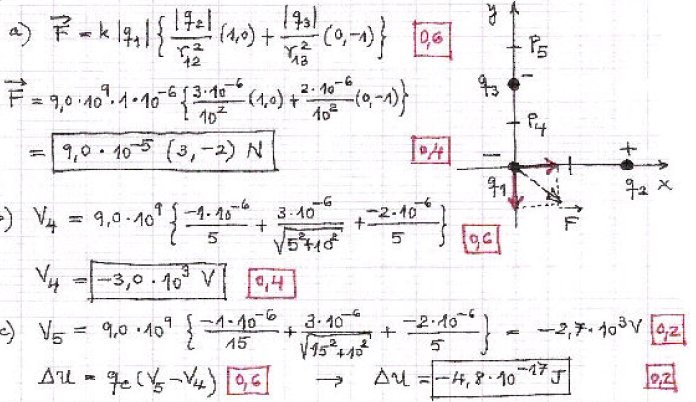 a) F⃗ = k |q₁| { |q₂|/r₁₂² (1,0) + |q₃|/r₁₃² (0,-1) } 0,6
F⃗ = 9,0·10⁹·1·10⁻⁶ { 3·10⁻⁶/10² (1,0) + 2·10⁻⁶/10² (0,-1) }
= 9,0·10⁻⁵ (3,-2) N 0,4
y
P₅
q₃ -
P₄
- +
q₁ q₂ x
F⃗
) V₄ = 9,0·10⁹ { -1·10⁻⁶/5 + 3·10⁻⁶/√(5²+10²) + -2·10⁻⁶/5 } 0,6
V₄ = -3,0·10³ V 0,4
c) V₅ = 9,0·10⁹ { -1·10⁻⁶/15 + 3·10⁻⁶/√(15²+10²) + -2·10⁻⁶/5 } = -2,7·10³ V 0,2
ΔU = qₑ (V₅-V₄) 0,6 → ΔU = -4,8·10⁻¹⁷ J 0,2